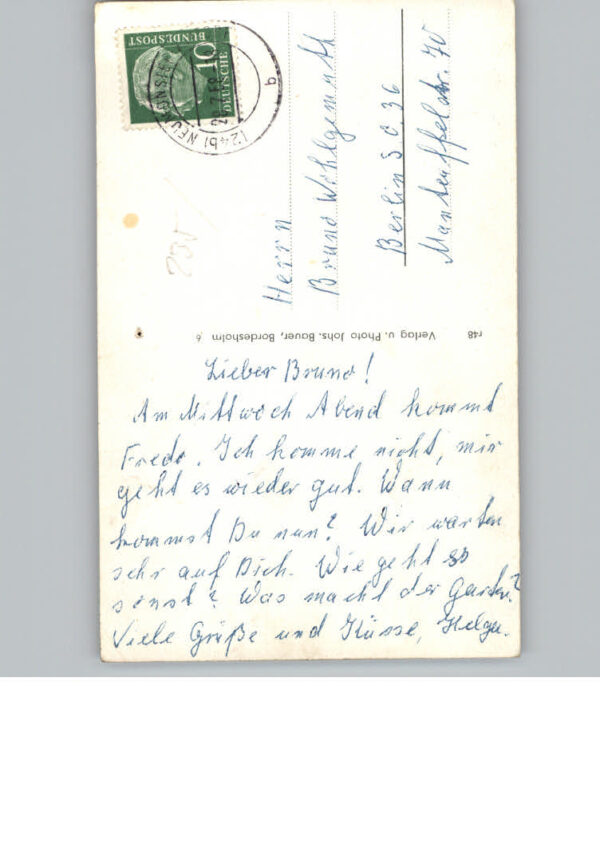 Lieber Bruno!
Am Mittwoch Abend kommt
Fredo. Ich komme nicht, mir
geht es wieder gut. Wann
kommst Du nun? Wir warten
sehr auf Dich. Wie geht es
sonst? Was macht der Garten?
Viele Grüße und Küsse, Helga.
Herrn
Bruno Wohlgemuth
Berlin SO 36
Manteuffelstr. 70
Verlag u. Photo Johs. Bauer, Bordesholm
r48
DEUTSCHE
BUNDESPOST
10
(24b) NEU
b